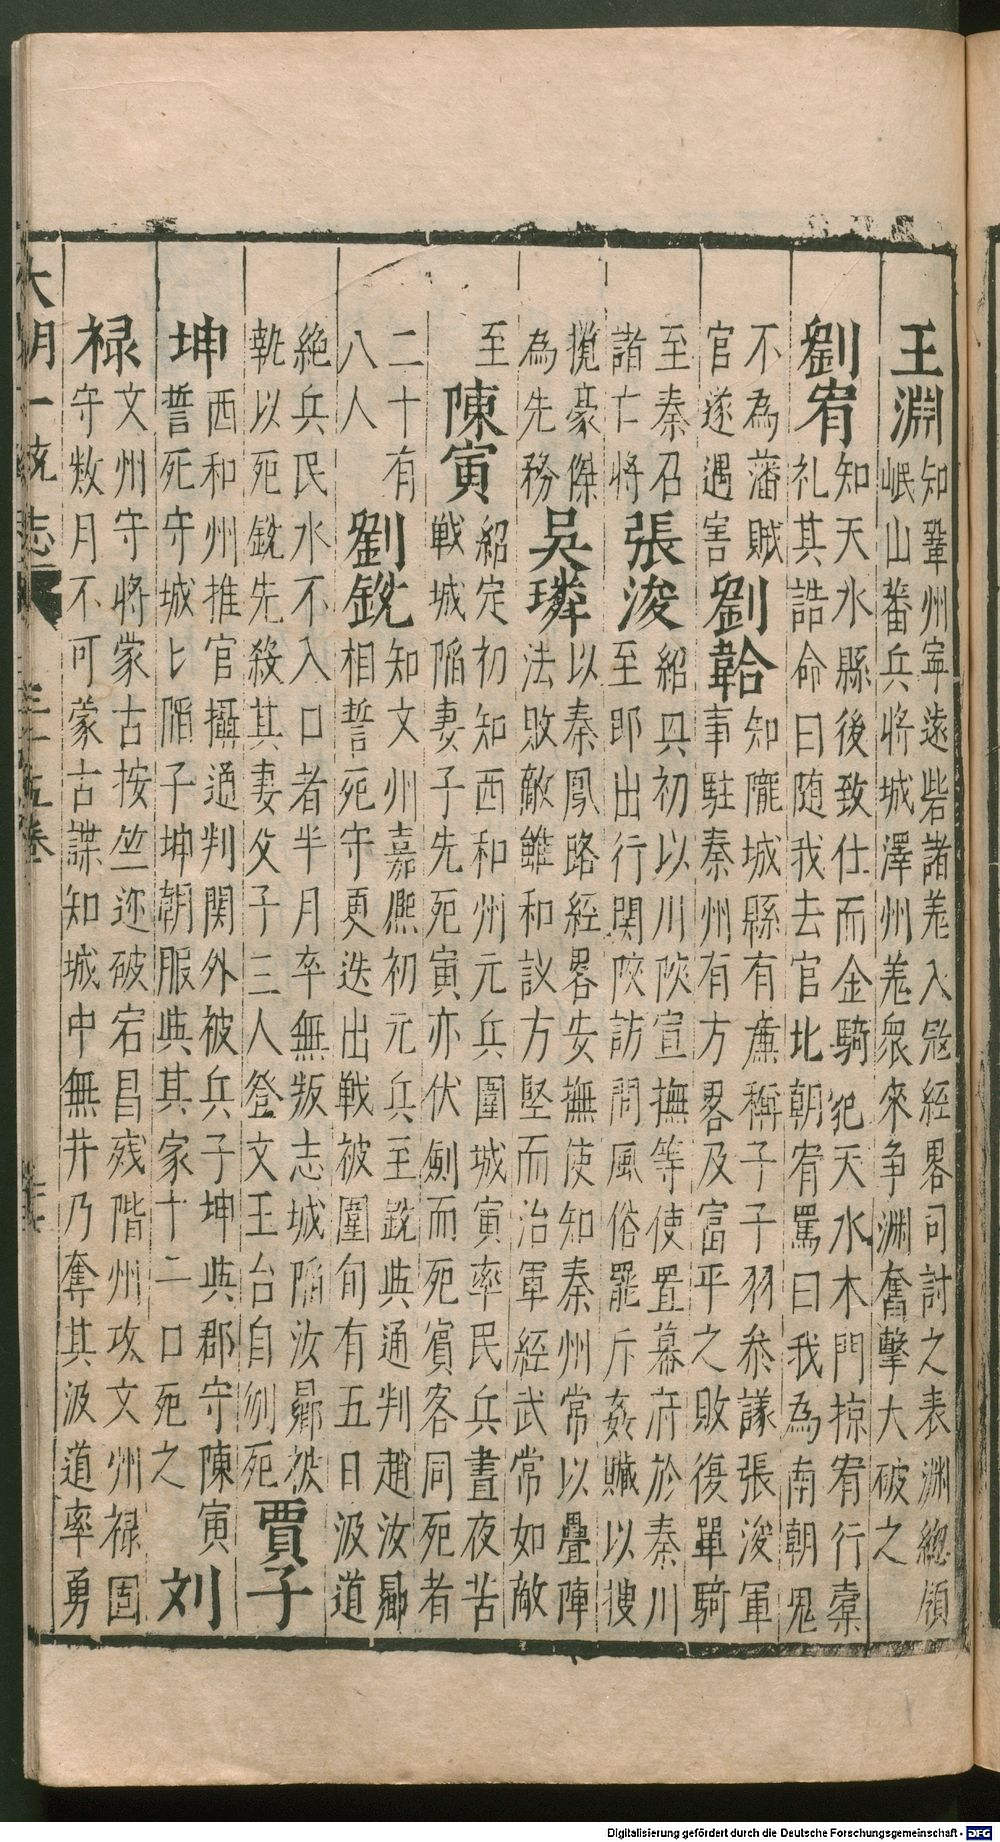 王淵知鞏州寧遠砦諸羌入冦經畧司討之表淵緫領
岷山蕃兵將城澤州羌衆來争淵奮擊大破之
劉宥知天水縣後致仕而金騎犯天水木門掠宥行橐
礼其誥命曰随我去官北朝宥罵曰我為南朝鬼
不為藩賊
官遂遇害
劉韐知隴城縣有亷稱子子羽叅議張浚軍
事駐秦州有方畧及富平之敗復單騎
至秦召
諸亡將
張浚紹興初以川陜宣撫等使置幕府於秦川
至即出行関陜訪問風俗罷斥姦贓以搜
攬豪傑
為先務
吳璘以秦鳳路經畧安撫使知秦州常以疊陣
法敗敵雖和議方堅而治軍經武常如敵
至
陳寅紹定初知西和州元兵圍城寅率民兵晝夜苦
戰城陷妻子先死寅亦伏劍而死賓客同死者
二十有
八人
劉銳知文州嘉熈初元兵至銳與通判趙汝鄙
相誓死守更迭出戰被圍旬有五日汲道
絶兵民水不入口者半月卒無叛志城陷汝鄙被
執以死銳先殺其妻父子三人登文王台自刎死
賈子
坤西和州推官攝通判関外被兵子坤與郡守陳寅
誓死守城匕陷子坤朝服與其家十二口死之
刘
禄文州守將蒙古按竺迩破宕昌残階州攻文州禄固
守敉月不可蒙古諜知城中無井乃奪其汲道率勇
大明一統志 三十五卷